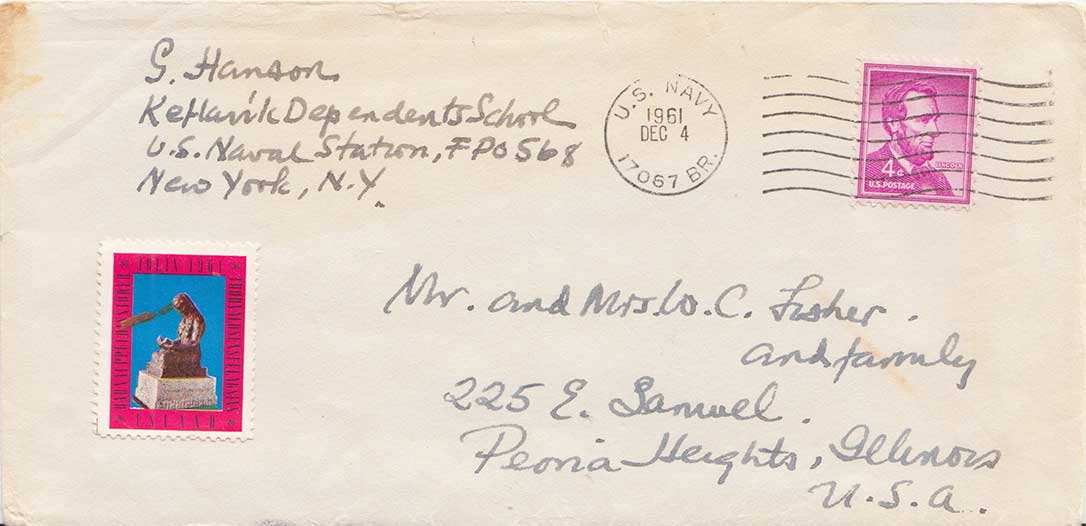 G. Hanson
Keflavik Dependents School
U.S. Naval Station, FPO 568
New York, N.Y.
U.S. NAVY
1961
DEC 4
17067 BR.
LINCOLN
4¢
U.S. POSTAGE
JÓLIN 1961
BARNAUPPELDISSJÓÐUR
THORVALDSENSFÉLAGSINS
ÍSLAND
Mr. and Mrs. W. C. Fisher.
and family
225 E. Samuel.
Peoria Heights, Illinois
U.S.A.